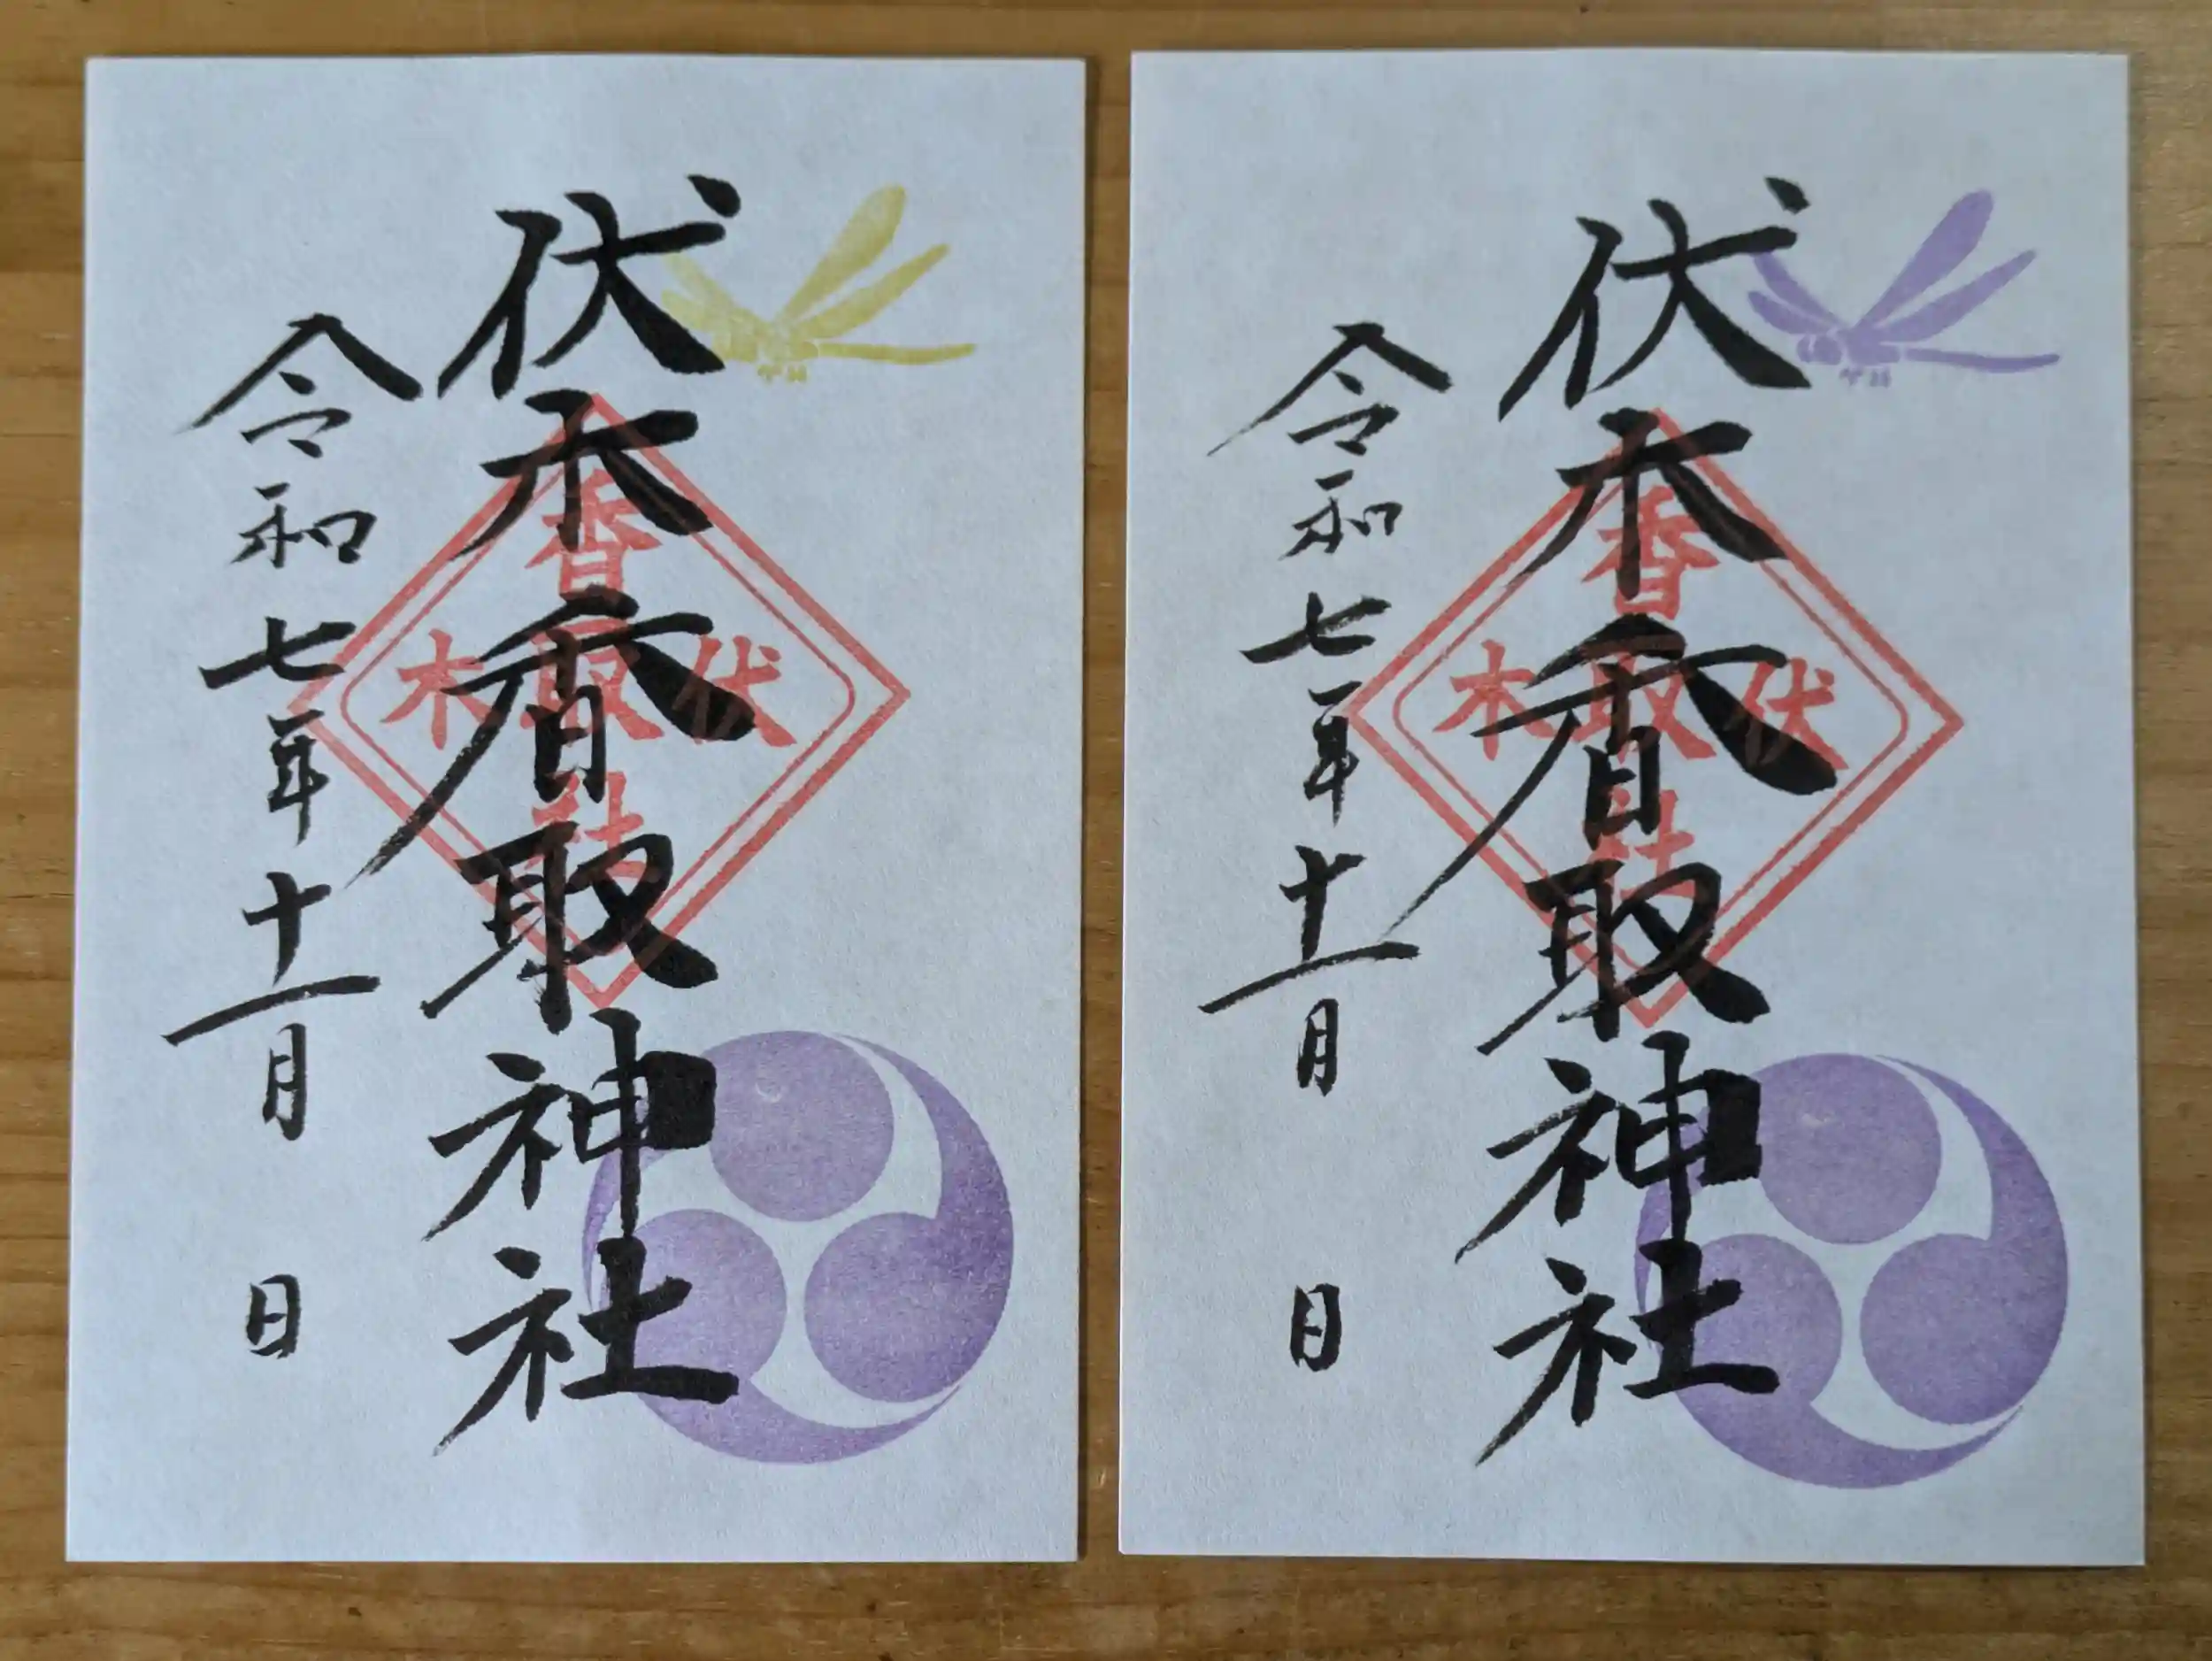 伏木香取神社
令和七年十一月 日
伏木
香取社
伏木香取神社
令和七年十一月 日
伏木
香取社